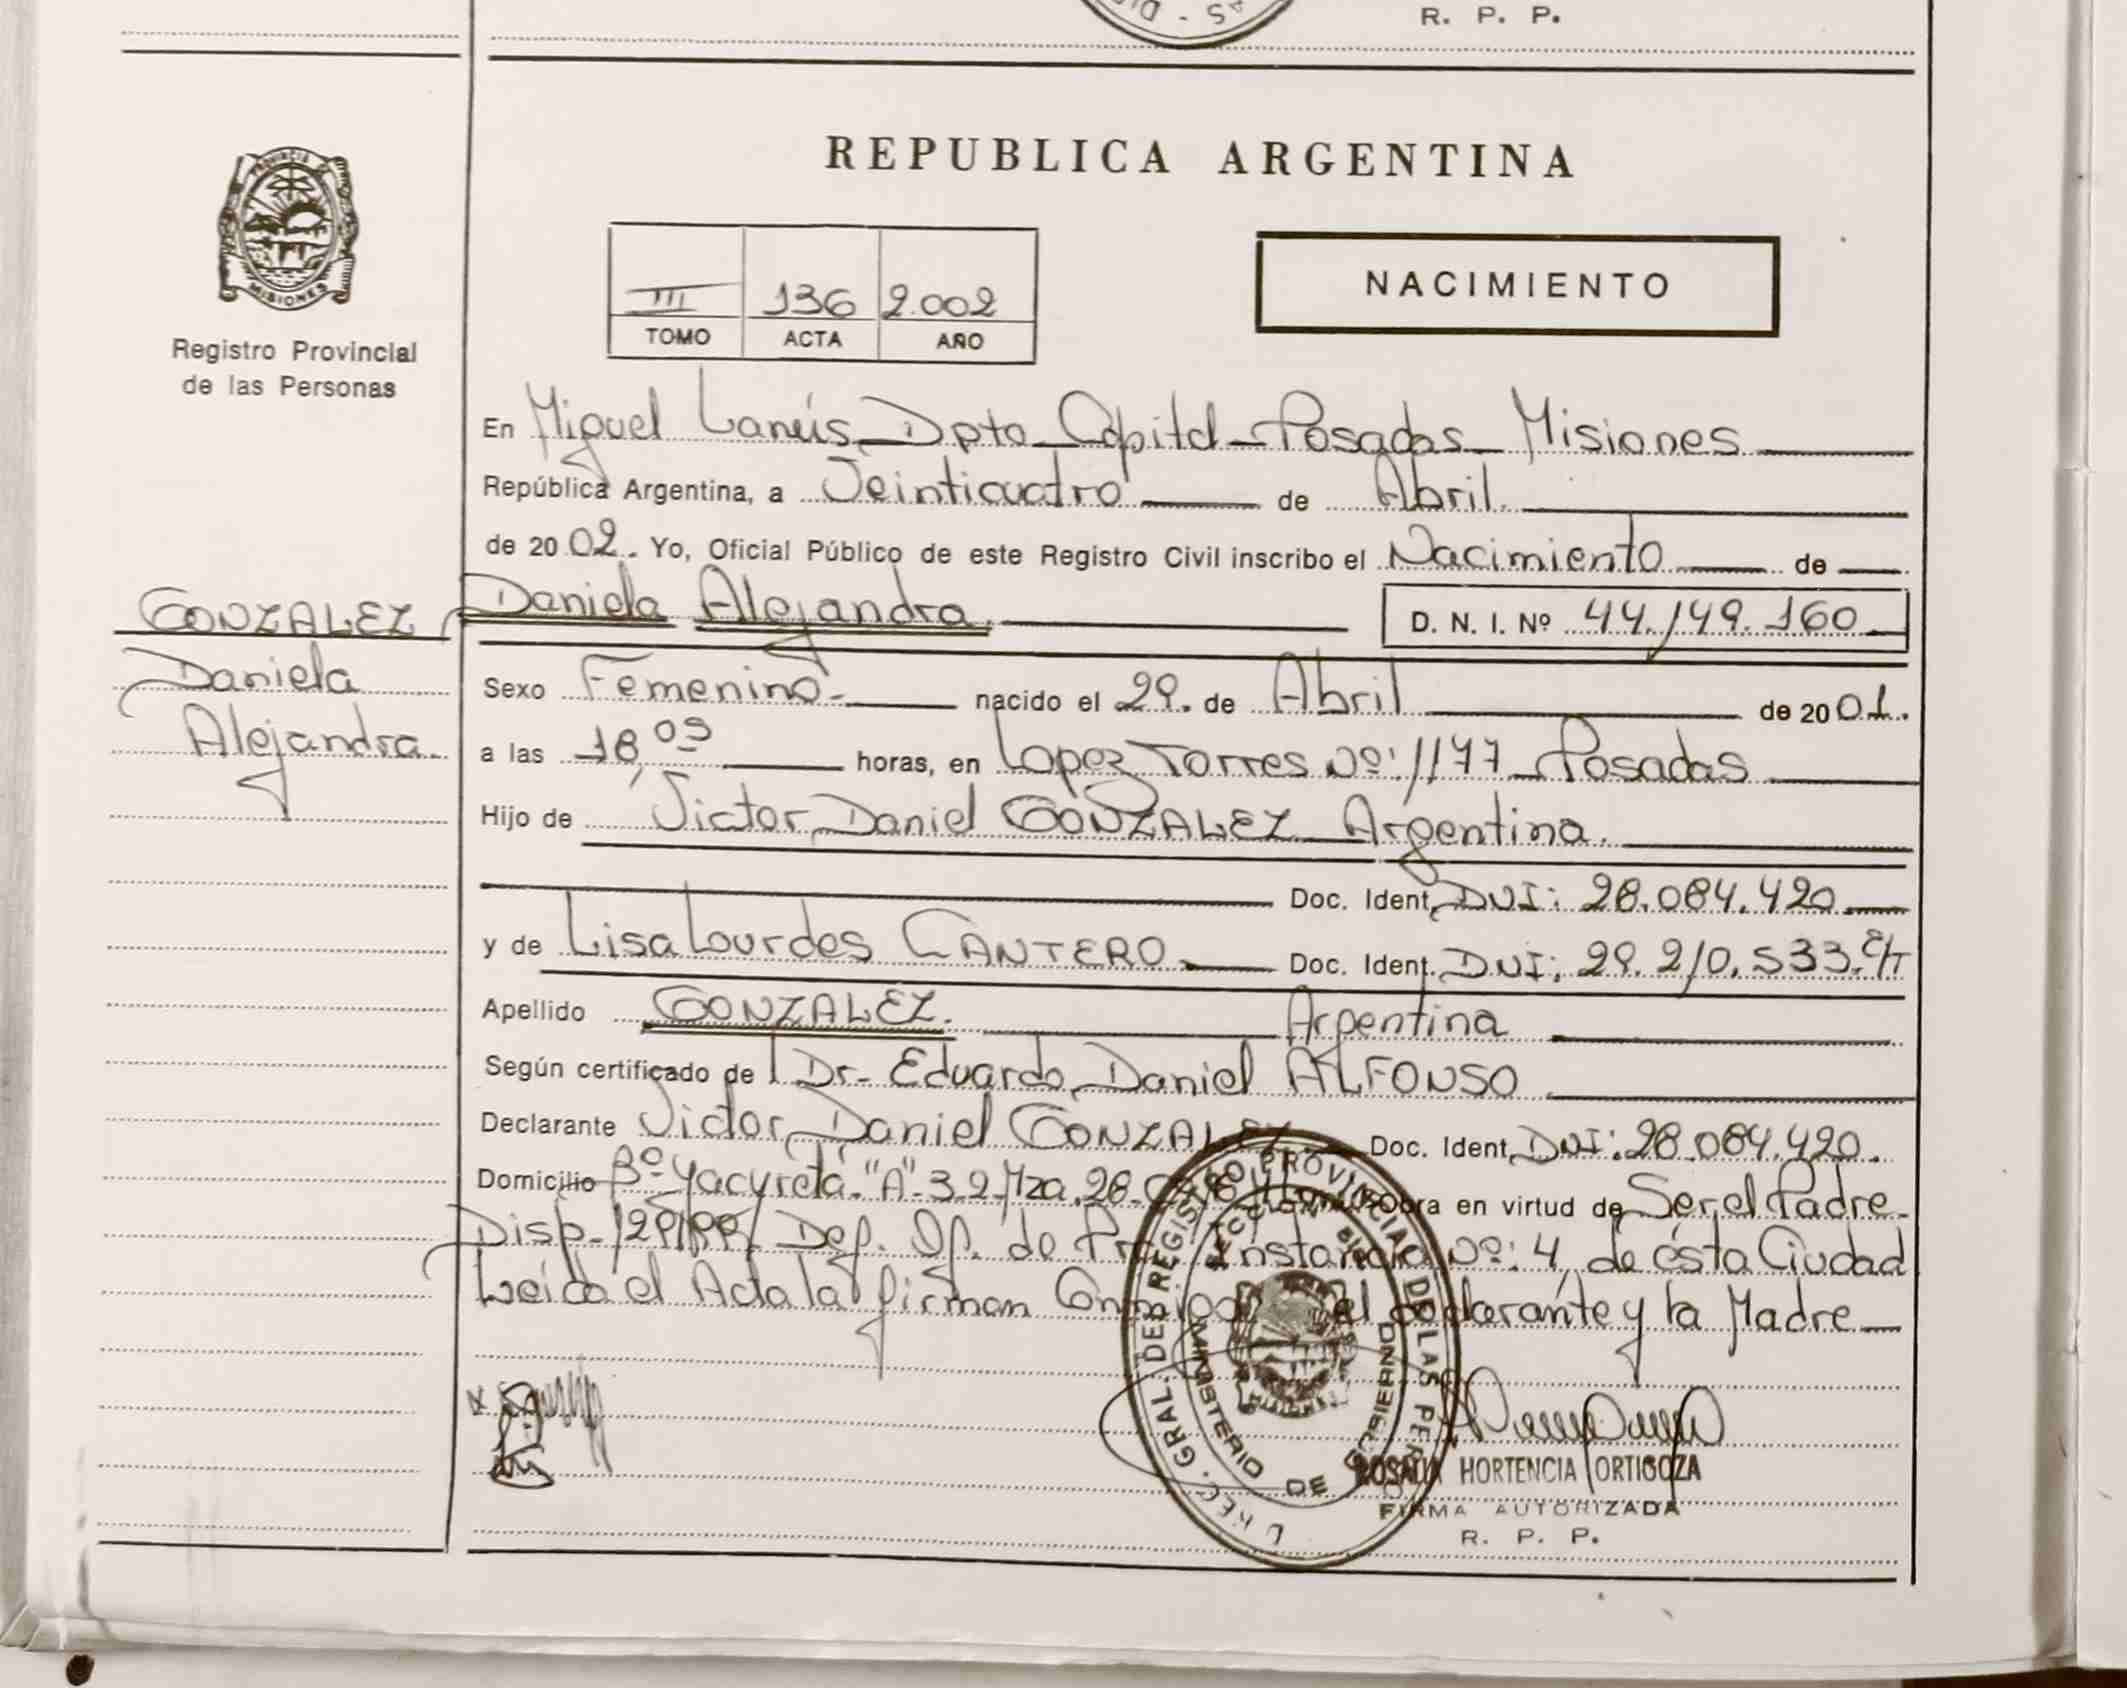 R. P. P.
REPUBLICA ARGENTINA
PROVINCIA DE
MISIONES
Registro Provincial
de las Personas
III 136 2.002
TOMO ACTA AÑO
NACIMIENTO
En Miguel Lanús Dpto Capital Posadas Misiones
República Argentina, a Veinticuatro de Abril.
de 2002. Yo, Oficial Público de este Registro Civil inscribo el Nacimiento de
GONZALEZ
Daniela
Alejandra.
Daniela Alejandra. D. N. I. Nº 44.149.160
Sexo Femenino nacido el 29. de Abril de 2001.
a las 18,05 horas, en Lopez Torres Nº: 1177 Posadas
Hijo de Victor Daniel GONZALEZ Argentina.
Doc. Ident. DNI: 28.084.420
y de Lisa Lourdes CANTERO. Doc. Ident. DNI: 29.210.533.
Apellido GONZALEZ. Argentina
Según certificado de Dr. Eduardo Daniel ALFONSO
Declarante Victor Daniel GONZALEZ Doc. Ident. DNI: 28.084.420.
Domicilio Bº Yacyretá "A" 32 Mza. 28 obra en virtud de Ser el Padre
Disp. Def. Of. de Instancia Nº: 4, de ésta Ciudad
Leida el Acta la firman el declarante y la Madre
GRAL. DEL REGISTRO PROVINCIAL DE LAS PER
MINISTERIO DE GOBIERNO
MISIONES
ROSALIA HORTENCIA ORTIGOZA
FIRMA AUTORIZADA
R. P. P.